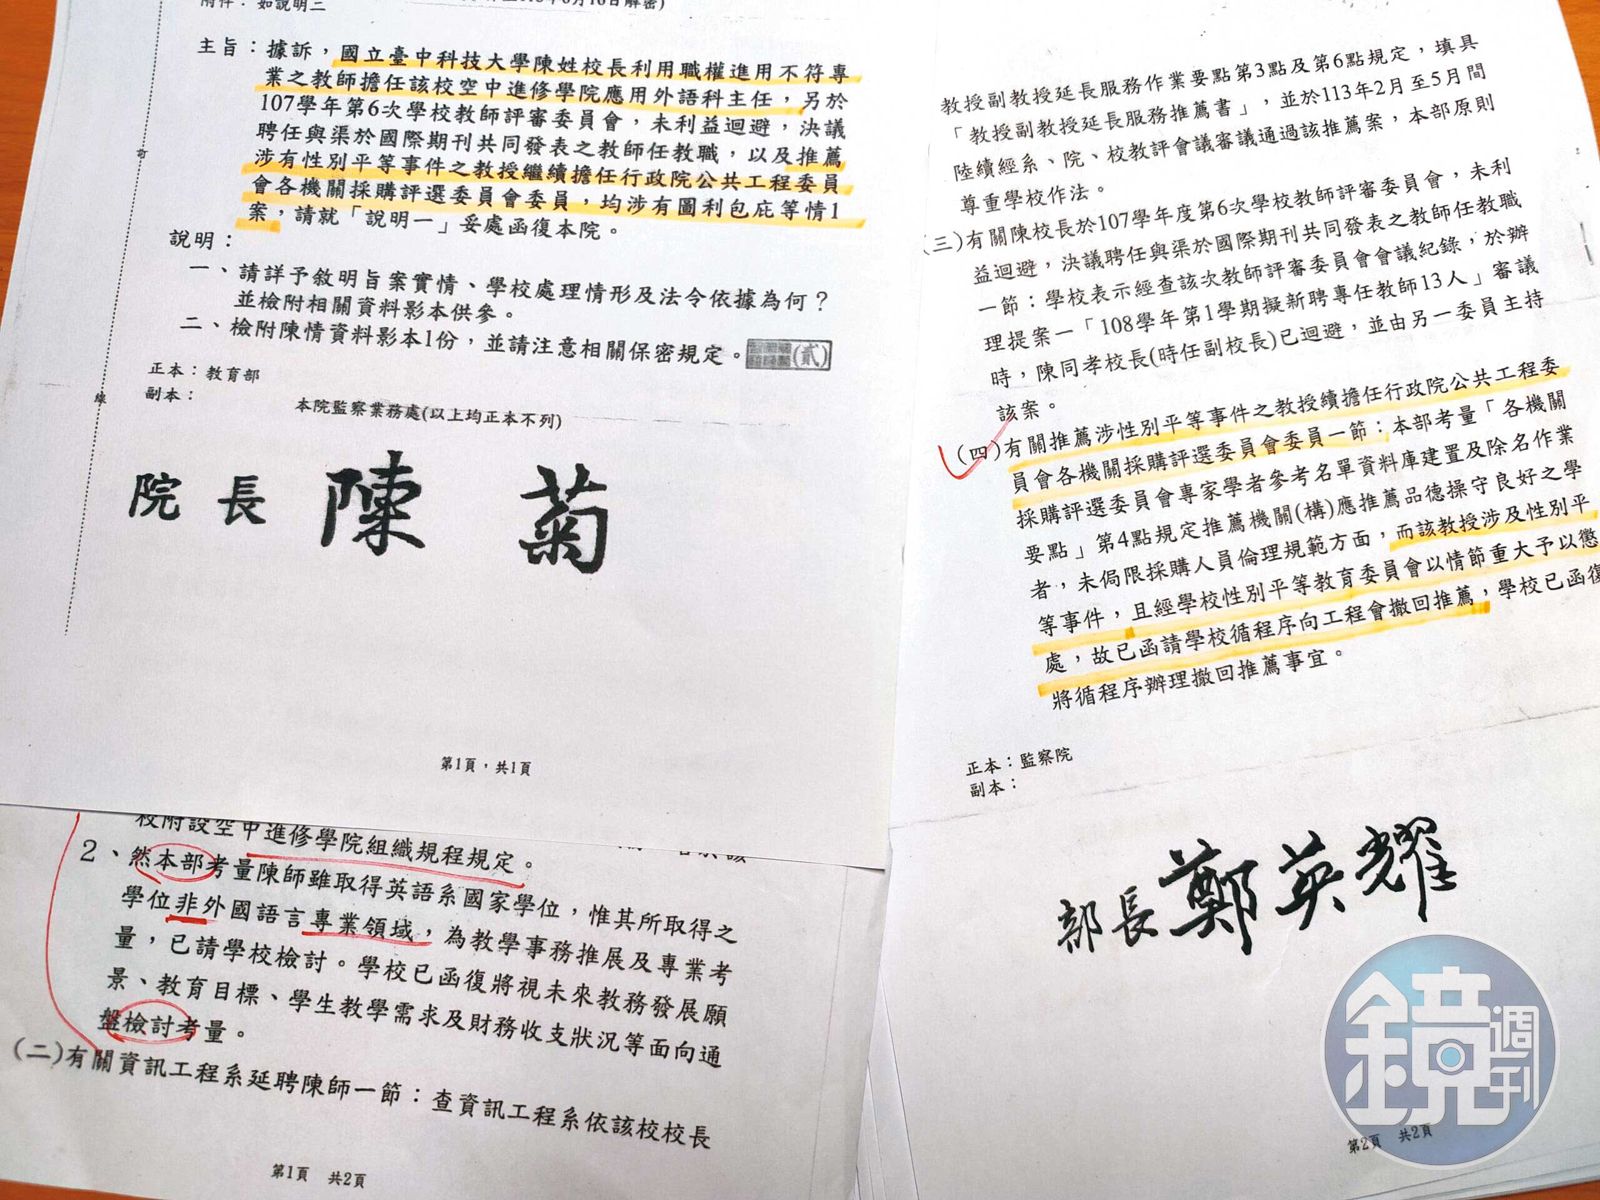 附件：如說明二
主旨：據訴，國立臺中科技大學陳姓校長利用職權進用不符專
業之教師擔任該校空中進修學院應用外語科主任，另於
107學年第6次學校教師評審委員會，未利益迴避，決議
聘任與渠於國際期刊共同發表之教師任教職，以及推薦
涉有性別平等事件之教授繼續擔任行政院公共工程委員
會各機關採購評選委員會委員，均涉有圖利包庇等情1
案，請就「說明一」妥處函復本院。
說明：
一、請詳予敘明旨案實情、學校處理情形及法令依據為何？
並檢附相關資料影本供參。
二、檢附陳情資料影本1份，並請注意相關保密規定。
(貳)
正本：教育部
副本：
本院監察業務處(以上均正本不列)
院長 陳菊
第1頁，共1頁
校附設空中進修學院組織規程規定。
2、然本部考量陳師雖取得英語系國家學位，惟其所取得之
學位非外國語言專業領域，為教學事務推展及專業考
量，已請學校檢討。學校已函復將視未來教務發展願
景、教育目標、學生教學需求及財務收支狀況等面向通
盤檢討考量。
(二)有關資訊工程系延聘陳師一節：查資訊工程系依該校校長
第1頁 共2頁
教授副教授延長服務作業要點第3點及第6點規定，填具
「教授副教授延長服務推薦書」，並於113年2月至5月間
陸續經系、院、校教評會議審議通過該推薦案，本部原則
尊重學校作法。
(三)有關陳校長於107學年度第6次學校教師評審委員會，未利
益迴避，決議聘任與渠於國際期刊共同發表之教師任教職
一節：學校表示經查該次教師評審委員會會議紀錄，於辦
理提案一「108學年第1學期擬新聘專任教師13人」審議
時，陳同孝校長(時任副校長)已迴避，並由另一委員主持
該案。
(四)有關推薦涉性別平等事件之教授續擔任行政院公共工程委
員會各機關採購評選委員會委員一節：本部考量「各機關
採購評選委員會專家學者參考名單資料庫建置及除名作業
要點」第4點規定推薦機關(構)應推薦品德操守良好之學
者，未侷限採購人員倫理規範方面，而該教授涉及性別平
等事件，且經學校性別平等教育委員會以情節重大予以懲
處，故已函請學校循程序向工程會撤回推薦，學校已函復
將循程序辦理撤回推薦事宜。
正本：監察院
副本：
部長 鄭英耀
第2頁 共2頁
鏡週刊